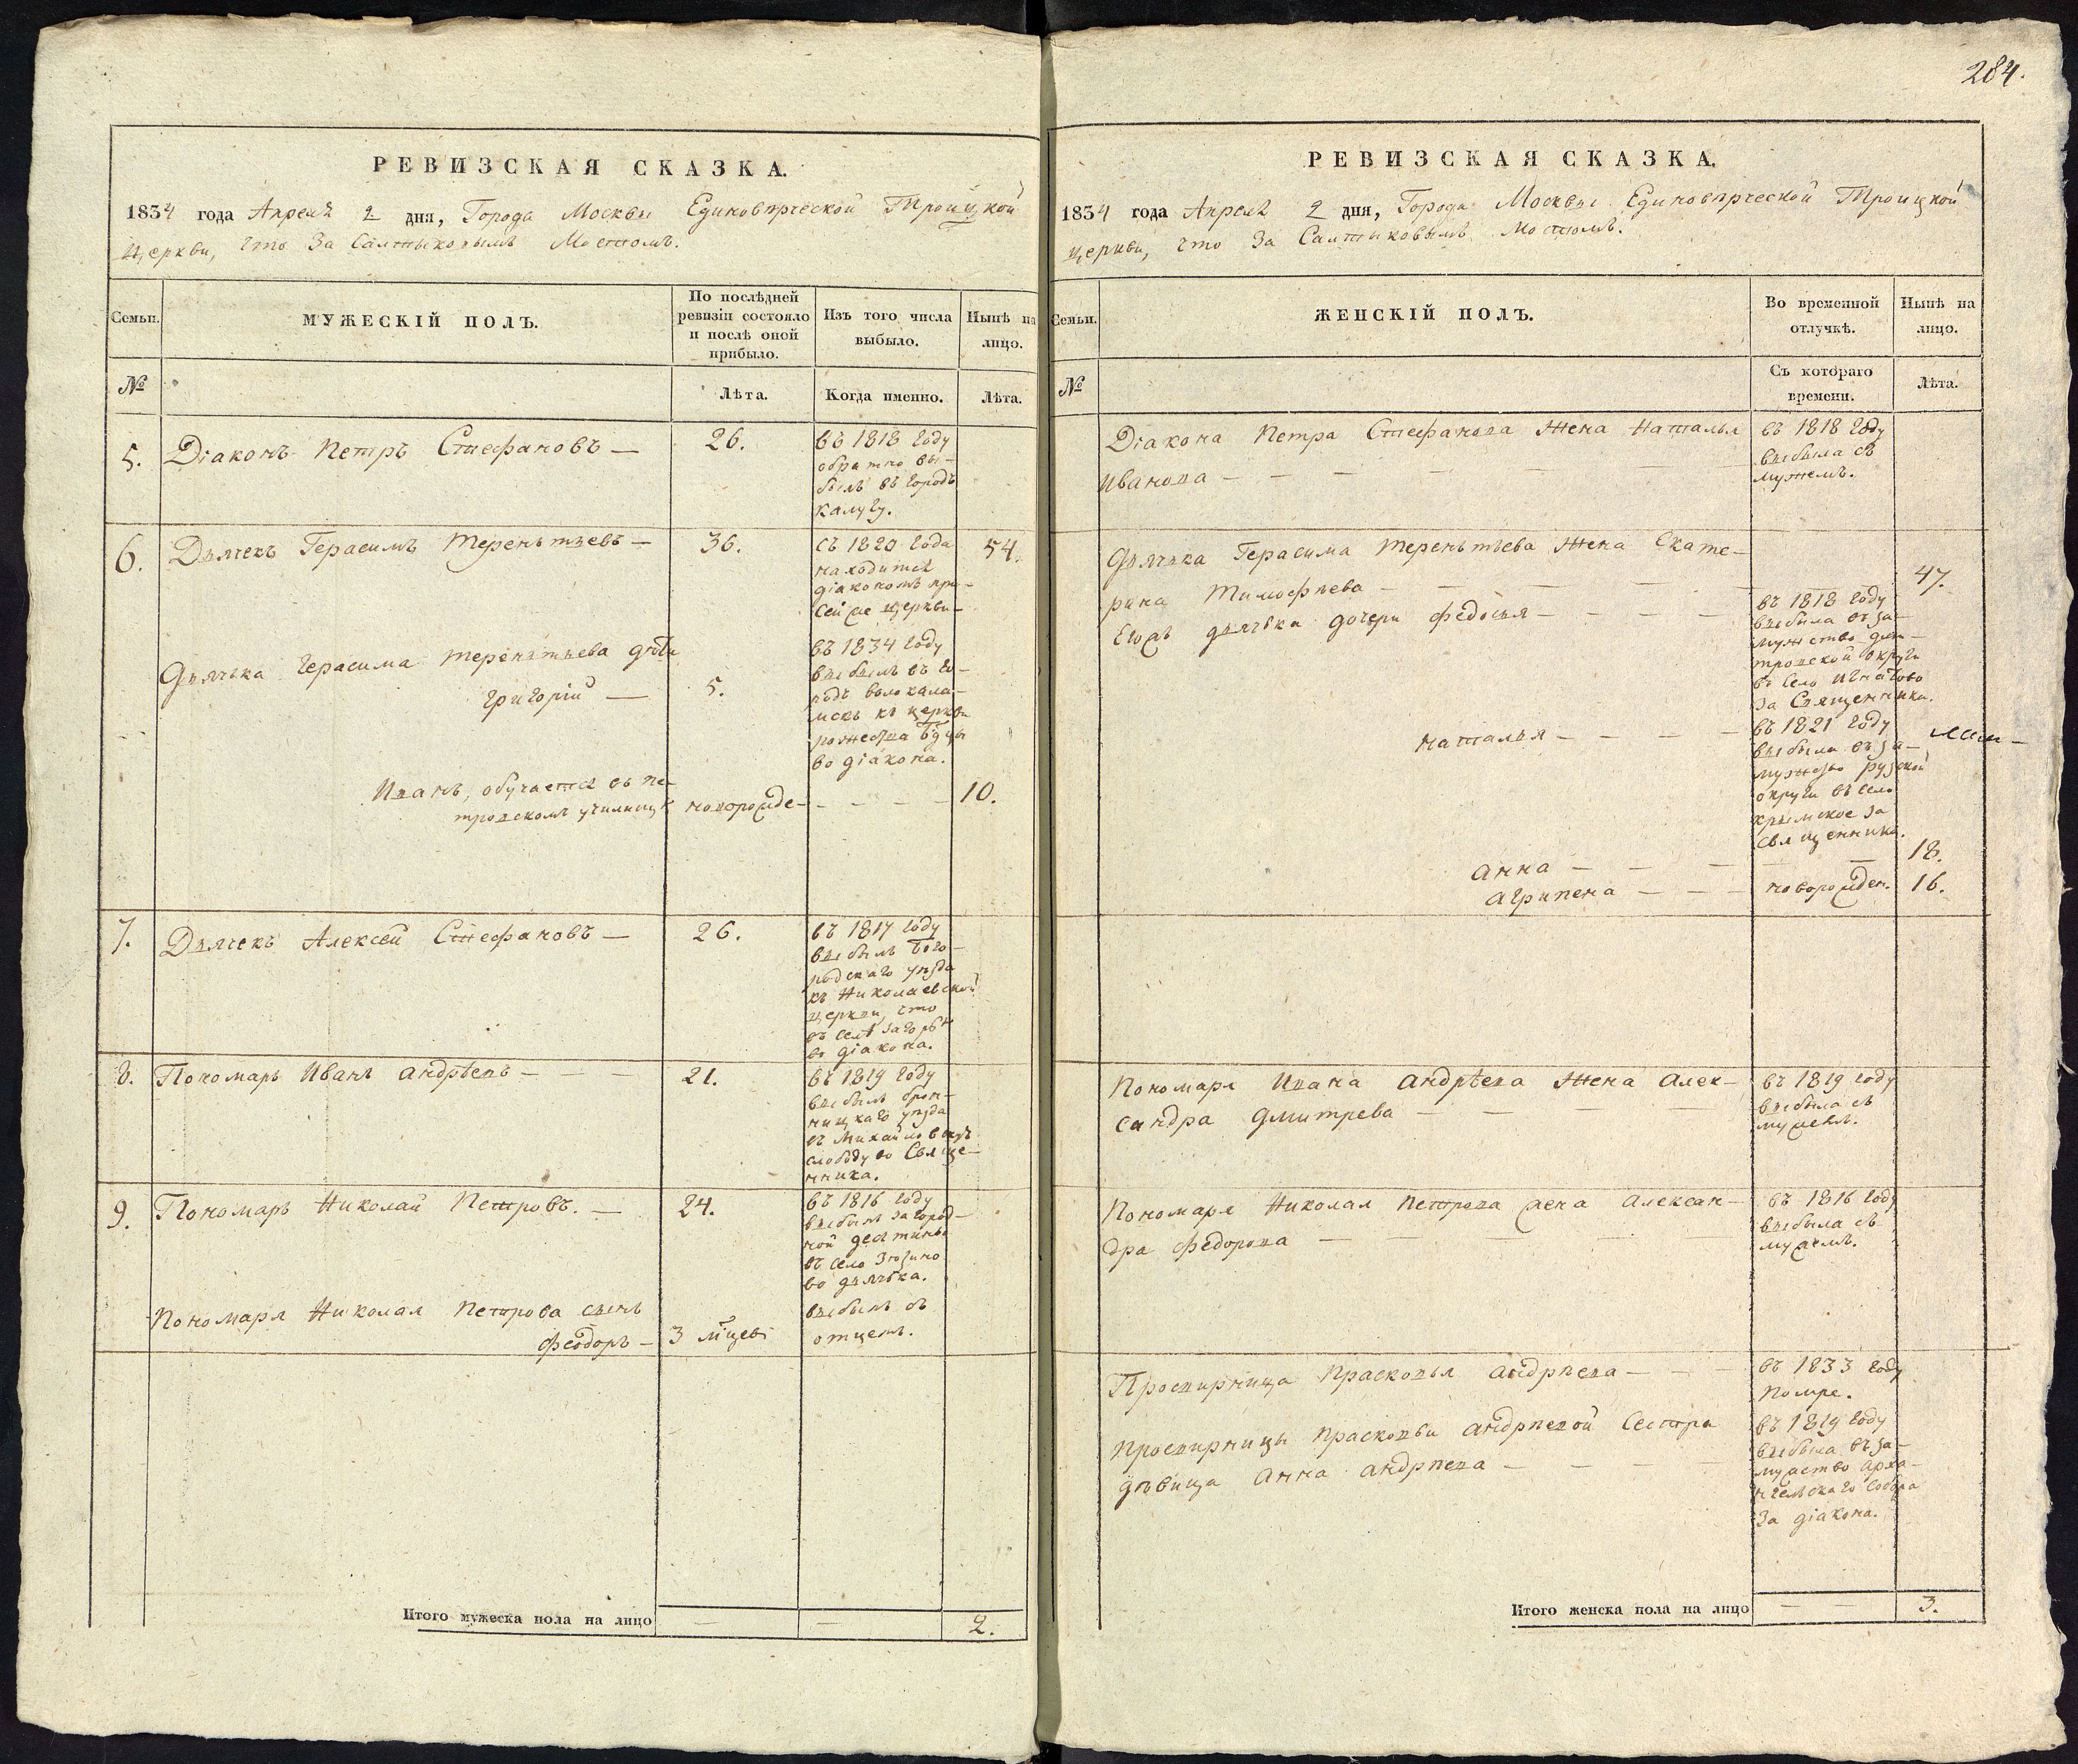 РЕВИЗСКАЯ СКАЗКА.
1834 года Апреля 2 дня, Города Москвы Единовѣрческой Троицкой
церкви, что за Салтыковымъ Мостомъ.
Семьи.
МУЖЕСКІЙ ПОЛЪ.
По послѣдней
ревизіи состояло
и послѣ оной
прибыло.
Изъ того числа
выбыло.
Нынѣ на
лицо.
№
Лѣта.
Когда именно.
Лѣта.
5. Діаконъ Петръ Стефановъ — 26.
въ 1818 году
обратно вы-
былъ въ городъ
калугу.
6. Дьячекъ Герасимъ Терентьевъ — 36. 54.
съ 1820 года
находится
діакономъ при
сей же церкви
Дьячька Герасима Терентьева дѣти
Григорій — 5.
въ 1834 году
выбылъ въ го-
родъ волокала-
мскъ къ церкви
рожества Бдцы
во діакона.
Иванъ, обучается въ пе-
тровскомъ училищѣ новорожде- — — — 10.
7. Дьячекъ Алексей Стефановъ — 26.
въ 1817 году
выбылъ Бого-
родскаго уѣзда
къ Николаевской
церкви, что
въ селѣ загорьѣ
во діакона.
8. Пономарь Иванъ андрѣевъ — — — 21.
въ 1819 году
выбылъ брон-
ницкаго уѣзда
въ Михайловскую
слободу во Свяще-
нника.
9. Пономарь Николай Петровъ. — 24.
въ 1816 году
выбылъ загород-
ной десятины
въ село Зюзино
во дьячька.
Пономаря Николая Петрова сынъ
Феодоръ — 3 мѣцевъ
выбылъ съ
отцемъ.
Итого мужеска пола на лицо — — 2.
284.
РЕВИЗСКАЯ СКАЗКА.
1834 года Апреля 2 дня, Города Москвы Единовѣрческой Троицкой
церкви, что за Салтыковымъ Мостомъ.
Семьи.
ЖЕНСКІЙ ПОЛЪ.
Во временной
отлучкѣ.
Нынѣ на
лицо.
№
Съ котораго
времени.
Лѣта.
Діакона Петра Стефанова жена Наталья
Иванова — — — — — —
въ 1818 году
выбыла съ
мужемъ.
Дьячька Герасима Терентьева жена Екате-
рина Тимофѣева — — — — 47.
Егожъ дьячька дочери Федосья — — — —
въ 1818 году
выбыла въ за-
мужство дми-
тровской округи
въ село Игнатово
за Священника.
Наталья — — — —
въ 1821 году
выбыла въ за-
мужство рузской
округи въ село
крымское за
священника.
Анна — — — — 18.
Агрипена — — — новорожден. 16.
Пономаря Ивана Андрѣева жена Алек-
сандра Дмитрева — — —
въ 1819 году
выбыла съ
мужемъ.
Пономаря Николая Петрова жена Алексан-
дра Федорова — — — — —
въ 1816 году
выбыла съ
мужемъ.
Просвирница Прасковья Андрѣева — —
въ 1833 году
помре.
Просвирницы Прасковьи Андрѣевой Сестра
дѣвица Анна Андрѣева — — — —
въ 1819 году
выбыла въ за-
мужство Арха-
нгельскаго Собора
за діакона.
Итого женска пола на лицо — — 3.